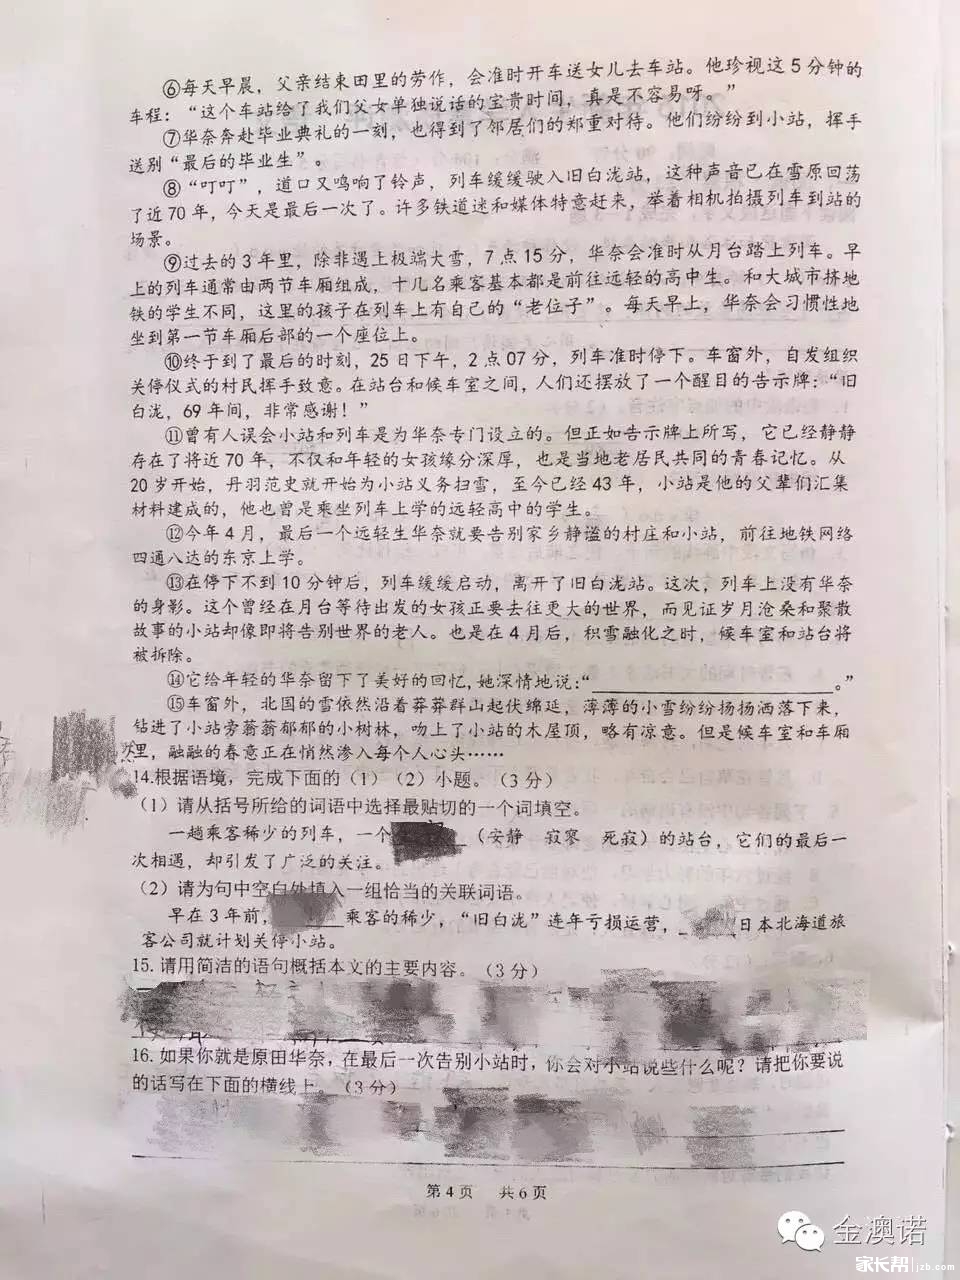 ⑥每天早晨，父亲结束田里的劳作，会准时开车送女儿去车站。他珍视这5分钟的
车程：“这个车站给了我们父女单独说话的宝贵时间，真是不容易呀。”
⑦华奈奔赴毕业典礼的一刻，也得到了邻居们的郑重对待。他们纷纷到小站，挥手
送别“最后的毕业生”。
⑧“叮叮”，道口又鸣响了铃声，列车缓缓驶入旧白泷站，这种声音已在雪原回荡
了近70年，今天是最后一次了。许多铁道迷和媒体特意赶来，举着相机拍摄列车到站的
场景。
⑨过去的3年里，除非遇上极端大雪，7点15分，华奈会准时从月台踏上列车。早
上的列车通常由两节车厢组成，十几名乘客基本都是前往远轻的高中生。和大城市挤地
铁的学生不同，这里的孩子在列车上有自己的“老位子”。每天早上，华奈会习惯性地
坐到第一节车厢后部的一个座位上。
⑩终于到了最后的时刻，25日下午，2点07分，列车准时停下。车窗外，自发组织
关停仪式的村民挥手致意。在站台和候车室之间，人们还摆放了一个醒目的告示牌：“旧
白泷，69年间，非常感谢！”
⑪曾有人误会小站和列车是为华奈专门设立的。但正如告示牌上所写，它已经静静
存在了将近70年，不仅和年轻的女孩缘分深厚，也是当地老居民共同的青春记忆。从
20岁开始，丹羽范史就开始为小站义务扫雪，至今已经43年，小站是他的父辈们汇集
材料建成的，他也曾是乘坐列车上学的远轻高中的学生。
⑫今年4月，最后一个远轻生华奈就要告别家乡静谧的村庄和小站，前往地铁网络
四通八达的东京上学。
⑬在停下不到10分钟后，列车缓缓启动，离开了旧白泷站。这次，列车上没有华奈
的身影。这个曾经在月台等待出发的女孩正要去往更大的世界，而见证岁月沧桑和聚散
故事的小站却像即将告别世界的老人。也是在4月后，积雪融化之时，候车室和站台将
被拆除。
⑭它给年轻的华奈留下了美好的回忆，她深情地说：“____________________。”
⑮车窗外，北国的雪依然沿着莽莽群山起伏绵延，薄薄的小雪纷纷扬扬洒落下来，
钻进了小站旁蓊蓊郁郁的小树林，吻上了小站的木屋顶，略有凉意。但是候车室和车厢
里，融融的春意正在悄然渗入每个人心头……
14.根据语境，完成下面的（1）（2）小题。（3分）
（1）请从括号所给的词语中选择最贴切的一个词填空。
一趟乘客稀少的列车，一个（安静 寂寥 死寂）的站台，它们的最后一
次相遇，却引发了广泛的关注。
（2）请为句中空白处填入一组恰当的关联词语。
早在3年前，乘客的稀少，“旧白泷”连年亏损运营，日本北海道旅
客公司就计划关停小站。
15.请用简洁的语句概括本文的主要内容。（3分）
16.如果你就是原田华奈，在最后一次告别小站时，你会对小站说些什么呢？请把你要说
的话写在下面的横线上。（3分）
第4页 共6页
金澳诺
家长帮 jzb.com